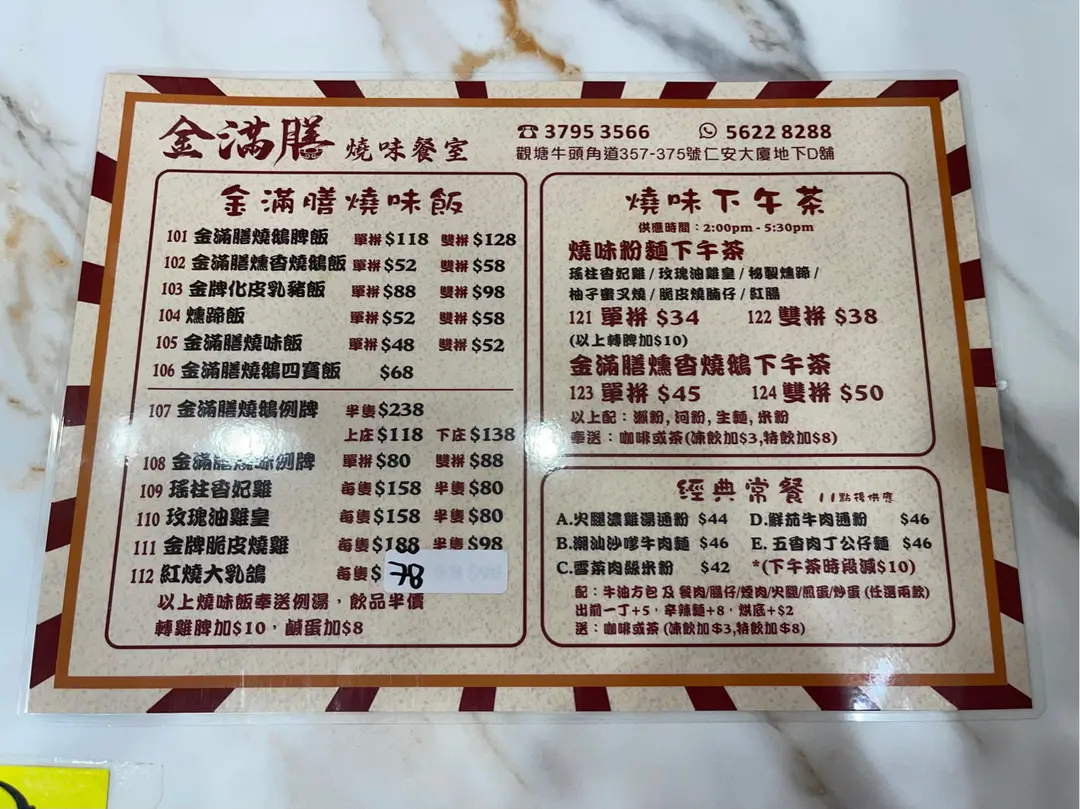 金滿膳 燒味餐室
3795 3566 5622 8288
觀塘牛頭角道357-375號仁安大廈地下D舖
金滿膳燒味飯
101 金滿膳燒鵝脾飯 單拼$118 雙拼$128
102 金滿膳燻香燒鵝飯 單拼$52 雙拼$58
103 金牌化皮乳豬飯 單拼$88 雙拼$98
104 燻蹄飯 單拼$52 雙拼$58
105 金滿膳燒味飯 單拼$48 雙拼$52
106 金滿膳燒鵝四寶飯 $68
107 金滿膳燒鵝例牌 半隻$238
上庄$118 下庄$138
108 金滿膳燒味例牌 單拼$80 雙拼$88
109 瑤柱香妃雞 每隻$158 半隻$80
110 玫瑰油雞皇 每隻$158 半隻$80
111 金牌脆皮燒雞 每隻$188 半隻$98
112 紅燒大乳鴿 每隻$ 78
以上燒味飯奉送例湯，飲品半價
轉雞脾加$10，鹹蛋加$8
燒味下午茶
供應時間：2:00pm - 5:30pm
燒味粉麵下午茶
瑤柱香妃雞 / 玫瑰油雞皇 / 秘製燻蹄 /
柚子蜜叉燒 / 脆皮燒腩仔 / 紅腸
121 單拼 $34 122 雙拼 $38
(以上轉脾加$10)
金滿膳燻香燒鵝下午茶
123 單拼 $45 124 雙拼 $50
以上配：瀨粉, 河粉, 生麵, 米粉
奉送：咖啡或茶(凍飲加$3,特飲加$8)
經典常餐 11點後供應
A.火腿濃雞湯通粉 $44 D.鮮茄牛肉通粉 $46
B.潮汕沙嗲牛肉麵 $46 E. 五香肉丁公仔麵 $46
C.雪菜肉絲米粉 $42 *(下午茶時段減$10)
配：牛油方包 及 餐肉/腸仔/煙肉/火腿/煎蛋/炒蛋 (任選兩款)
出前一丁+5，辛辣麵+8，烘底+$2
送：咖啡或茶 (凍飲加$3,特飲加$8)